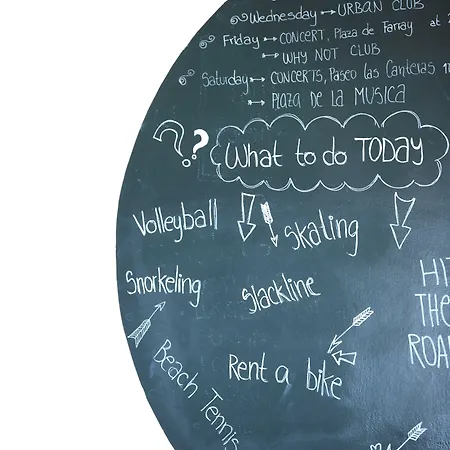 Wednesday → URBAN CLUB
Friday → CONCERT, Plaza de Farray at 2
→ WHY NOT CLUB
Saturday → CONCERTS, Paseo las Canteras 11
→ PLAZA DE LA MUSICA
??
What to do TODAY
Volleyball
Skating
Snorkeling
Slackline
HIT
THE
ROAD
Rent a bike
Beach Tennis